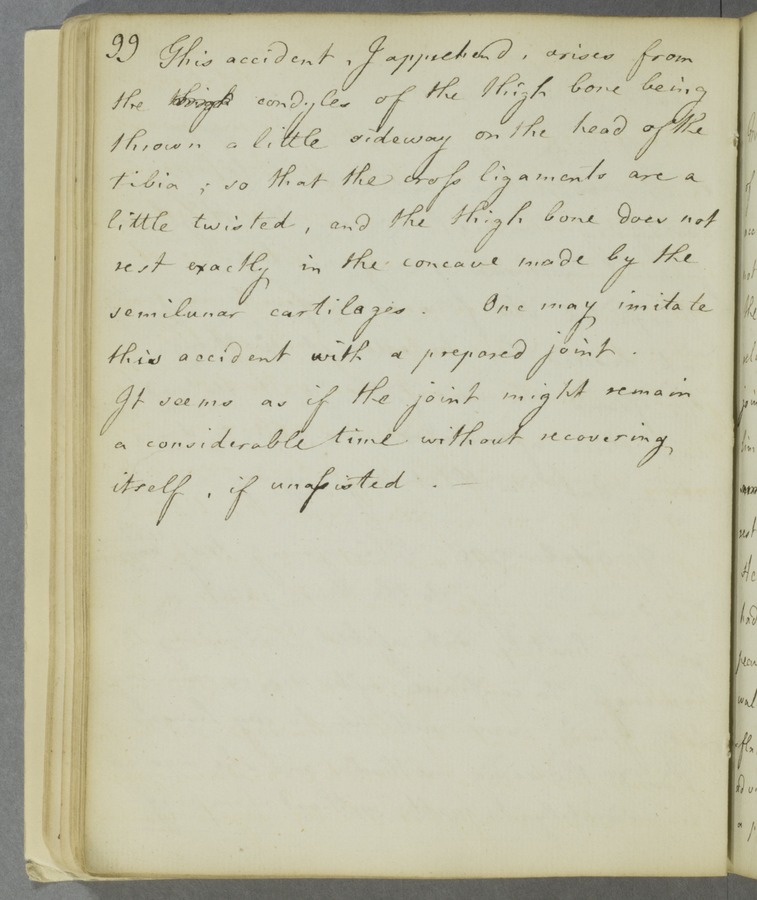 99 This accident, I apprehend, arises from
the thigh condyles of the thigh bone being
thrown a little sideway on the head of the
tibia; so that the cross ligaments are a
little twisted, and the thigh bone does not
rest exactly in the concave made by the
semilunar cartilages. One may imitate
this accident with a prepared joint.
It seems as if the joint might remain
a considerable time without recovering
itself, if unassisted. —